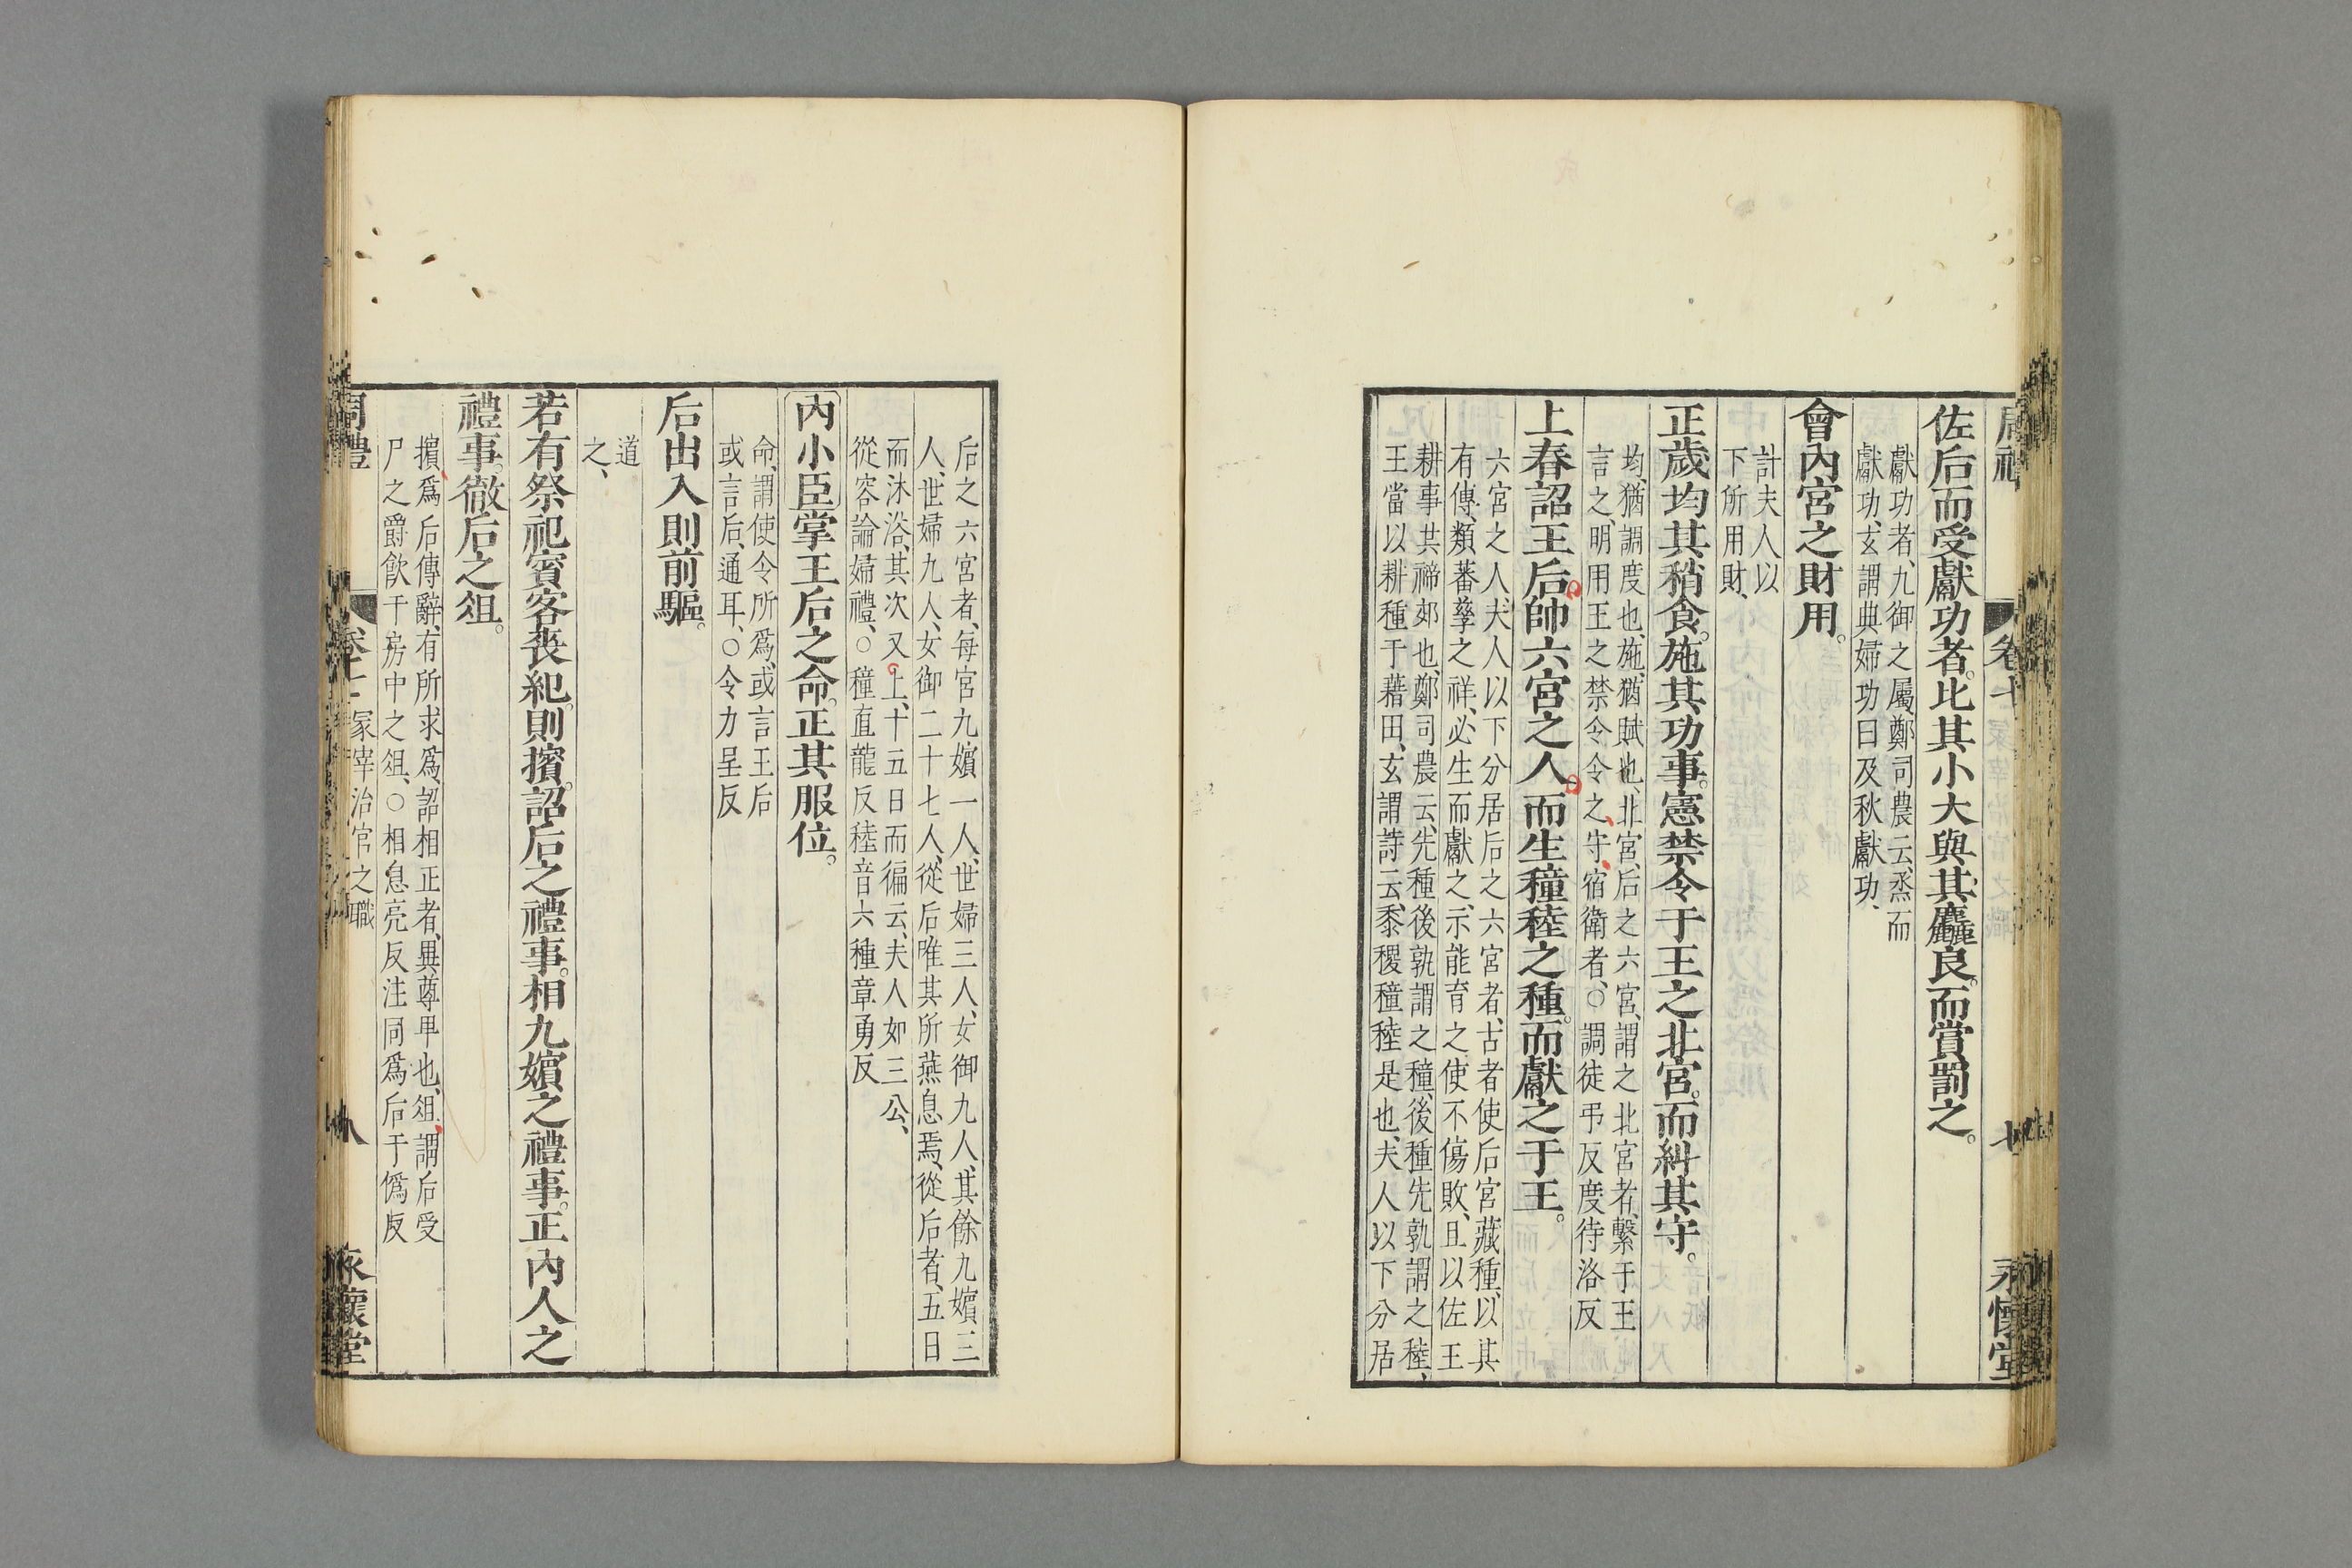 佐后而受獻功者。比其小大與其麤良。而賞罰之。
獻功者、九御之屬、鄭司農云、烝而
獻功、玄謂典婦功曰及秋獻功、
會內宮之財用。
計夫人以
下所用財、
正歲均其稍食。施其功事。憲禁令于王之北宮。而糾其守。
均、猶調度也、施、猶賦也、北宮、后之六宮、謂之北宮者、繫于王
言之、明用王之禁令令之、守、宿衛者、○調徒弔反度待洛反
上春詔王后帥六宮之人。而生穜稑之種。而獻之于王。
六宮之人、夫人以下分居后之六宮者、古者使后宮藏種、以其
有傳類蕃孳之祥、必生而獻之、示能育之、使不傷敗、且以佐王
耕事共禘郊也、鄭司農云、先種後孰謂之穜、後種先孰謂之稑、
王當以耕種于藉田、玄謂詩云、黍稷穜稑是也、夫人以下分居
后之六宮者、每宮九嬪一人、世婦三人、女御九人、其餘九嬪三
人、世婦九人、女御二十七人、從后唯其所燕息焉、從后者、五日
而沐浴、其次又上、十五日而徧云、夫人如三公、
從容論婦禮、○穜直龍反稑音六種章勇反
內小臣掌王后之命。正其服位。
命、謂使令所爲、或言王后
或言后、通耳、○令力呈反
后出入則前驅。
道
之、
若有祭祀賓客喪紀。則擯。詔后之禮事。相九嬪之禮事。正內人之
禮事。徹后之俎。
擯、爲后傳辭、有所求爲、詔相正者、異尊卑也、俎、謂后受
尸之爵飮于房中之俎、○相息亮反注同爲后于僞反
周禮 卷七 冢宰治官之職 八 永懷堂